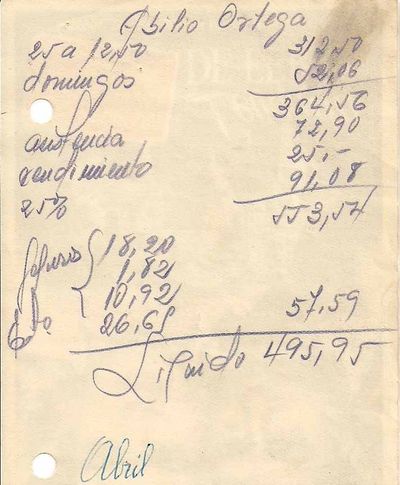 Abilio Ortega
25 a 12,50 312,50
domingos 52,06
364,56
asistencia 72,90
rendimiento 25,-
25% 91,08
553,54
18,20
1,82
10,92
26,65 57,59
Liquido 495,95
Abril